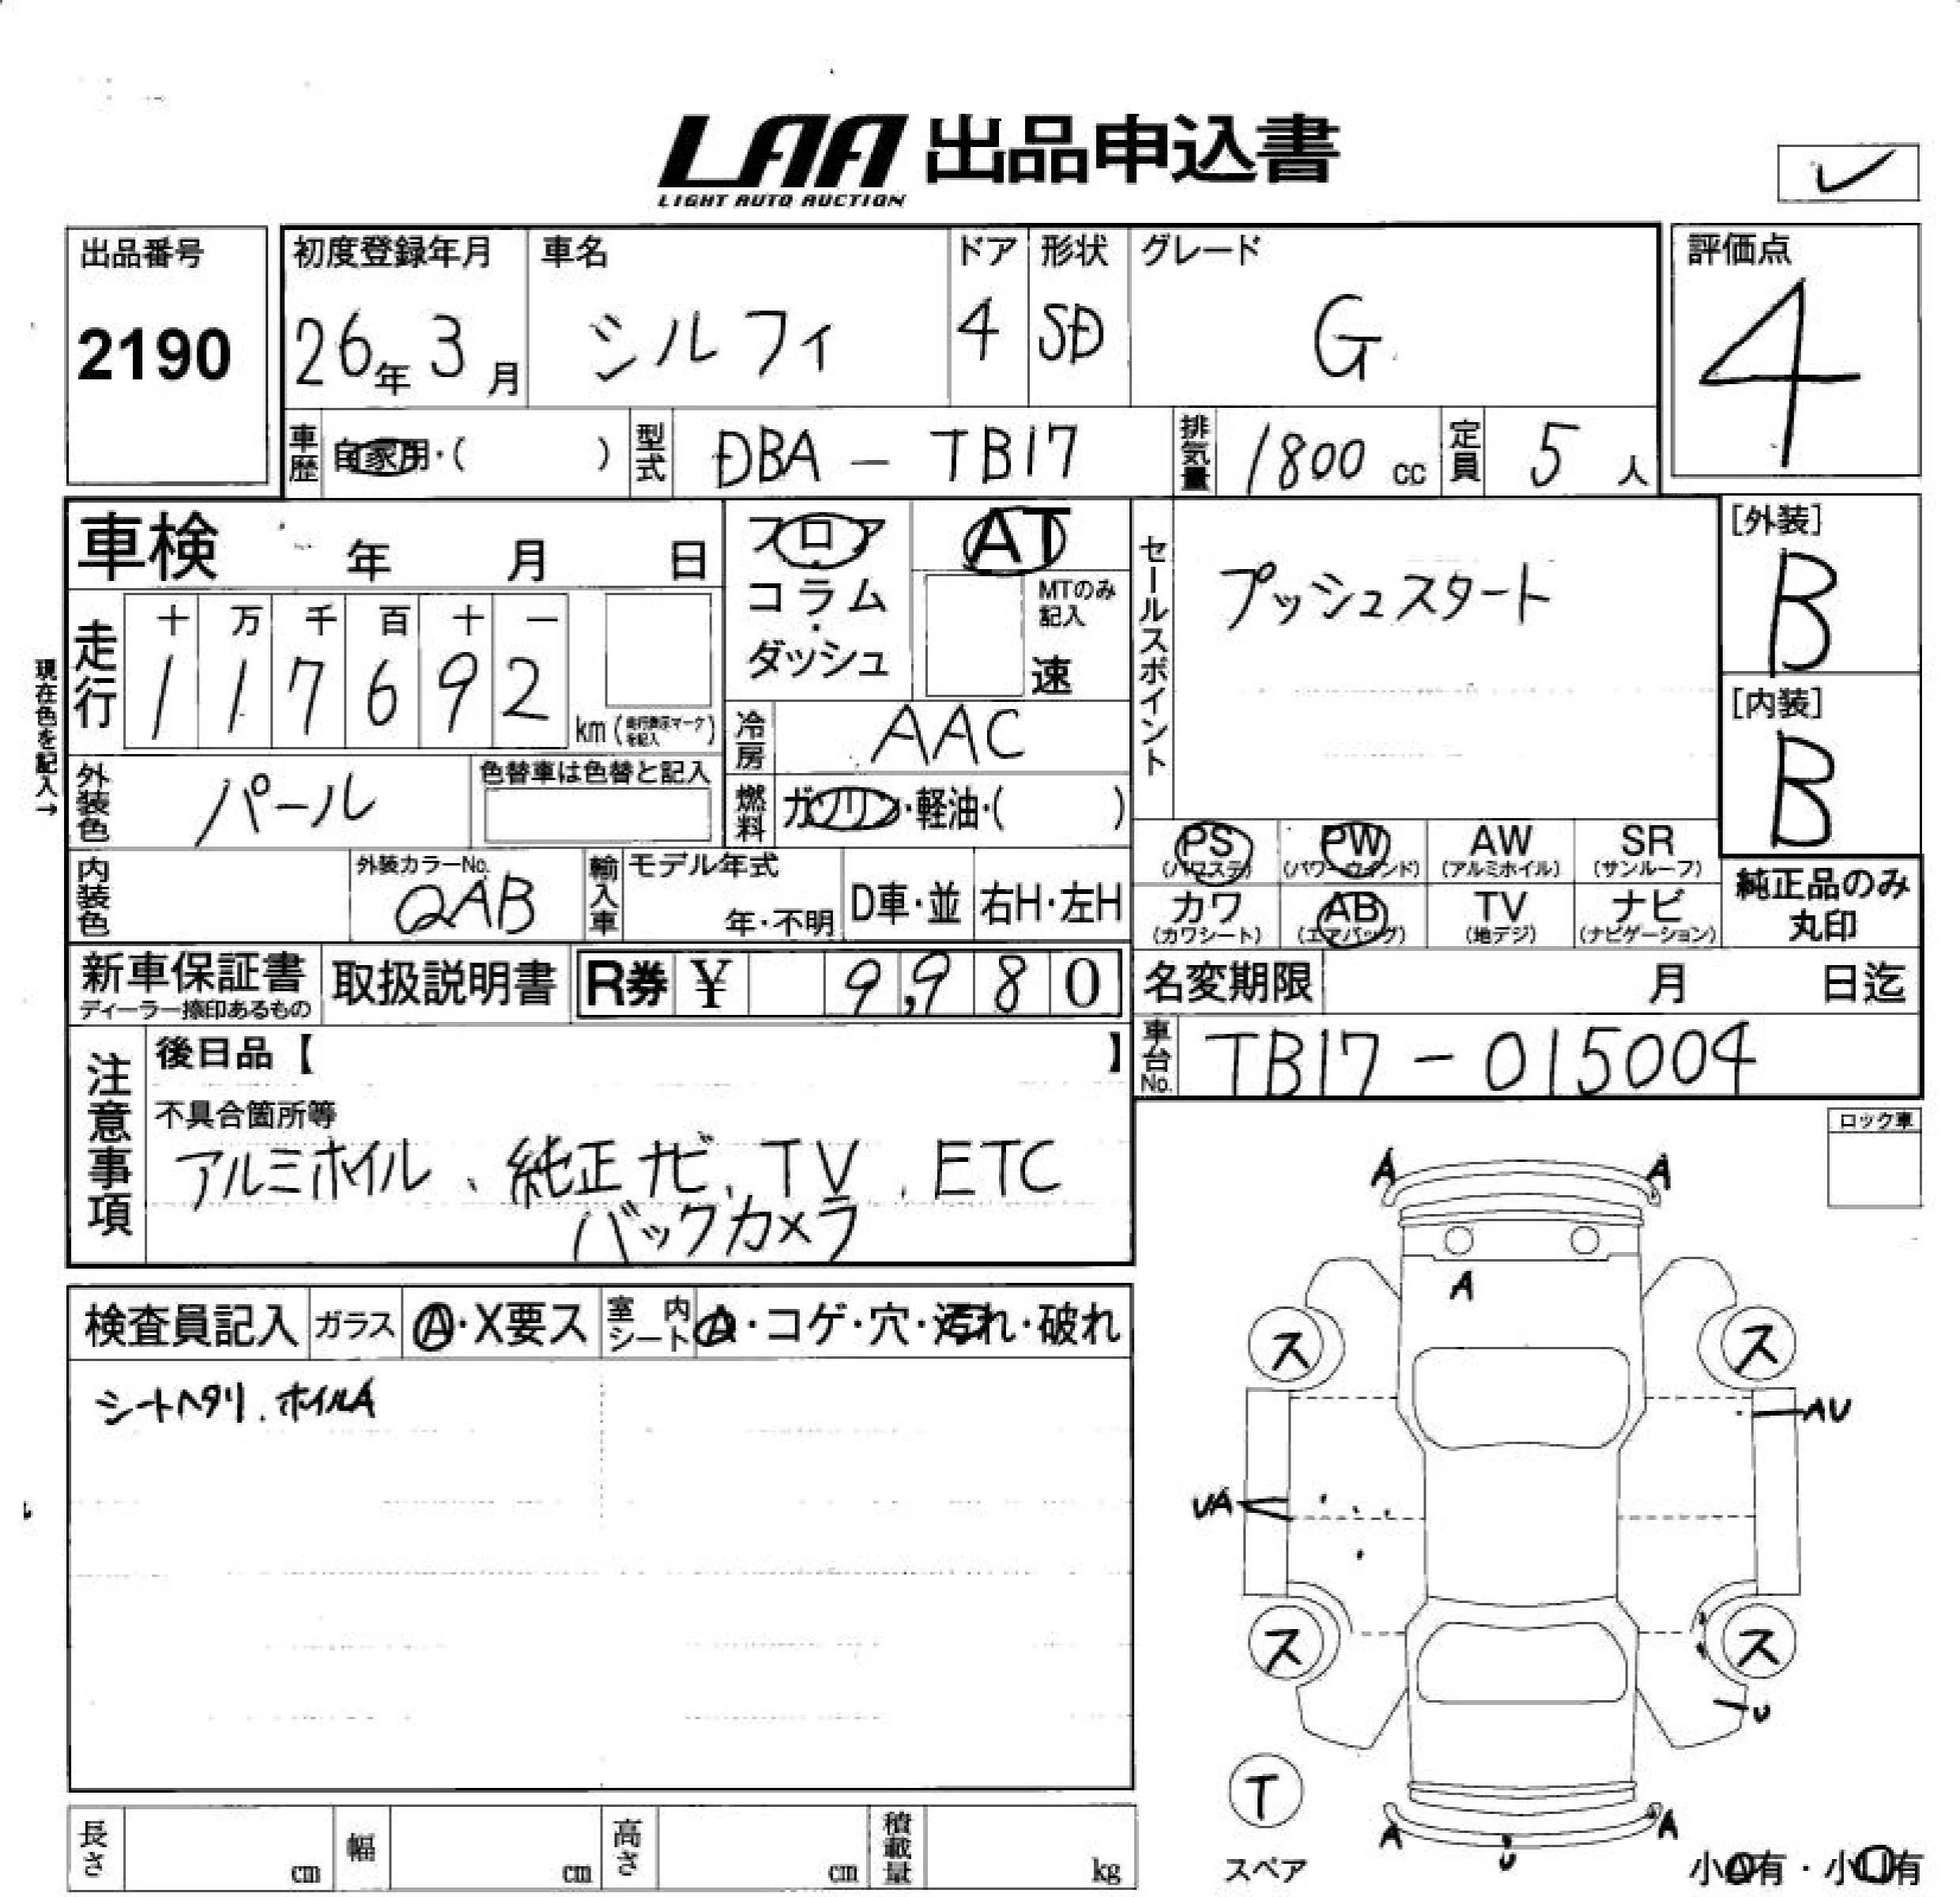 LAA 出品申込書
LIGHT AUTO AUCTION
出品番号
2190
初度登録年月
26年 3月
車名
シルフィ
ドア
4
形状
SD
グレード
G
評価点
4
車歴 自家用・( )
型式 DBA - TB17
排気量 1800 cc
定員 5 人
車検 年 月 日
フロア・コラム・ダッシュ
AT
MTのみ記入
速
セールスポイント
プッシュスタート
[外装]
B
[内装]
B
現在色を記入→
走行
十 万 千 百 十 一
1 1 7 6 9 2
km (走行表示マークを記入)
冷房 AAC
外装色 パール
色替車は色替と記入
燃料 ガソリン・軽油・( )
PS (パワステ)
PW (パワーウインド)
AW (アルミホイル)
SR (サンルーフ)
カワ (カワシート)
AB (エアバッグ)
TV (地デジ)
ナビ (ナビゲーション)
純正品のみ
丸印
内装色
外装カラーNo.
QAB
輸入車
モデル年式
年・不明
D車・並
右H・左H
新車保証書
ディーラー捺印あるもの
取扱説明書
R券 ¥ 9,980
名変期限 月 日迄
車台No. TB17 - 015004
注意事項
後日品【 】
不具合箇所等
アルミホイル、純正ナビ、TV、ETC
バックカメラ
ロック車
検査員記入
ガラス
A・X要ス
室内シート
A・コゲ・穴・汚れ・破れ
シートヘタリ、ホイルA
A
A
A
ス
ス
AU
UA
ス
ス
U
T
スペア
A
U
A
小A有・小U有
長さ cm
幅 cm
高さ cm
積載量 kg